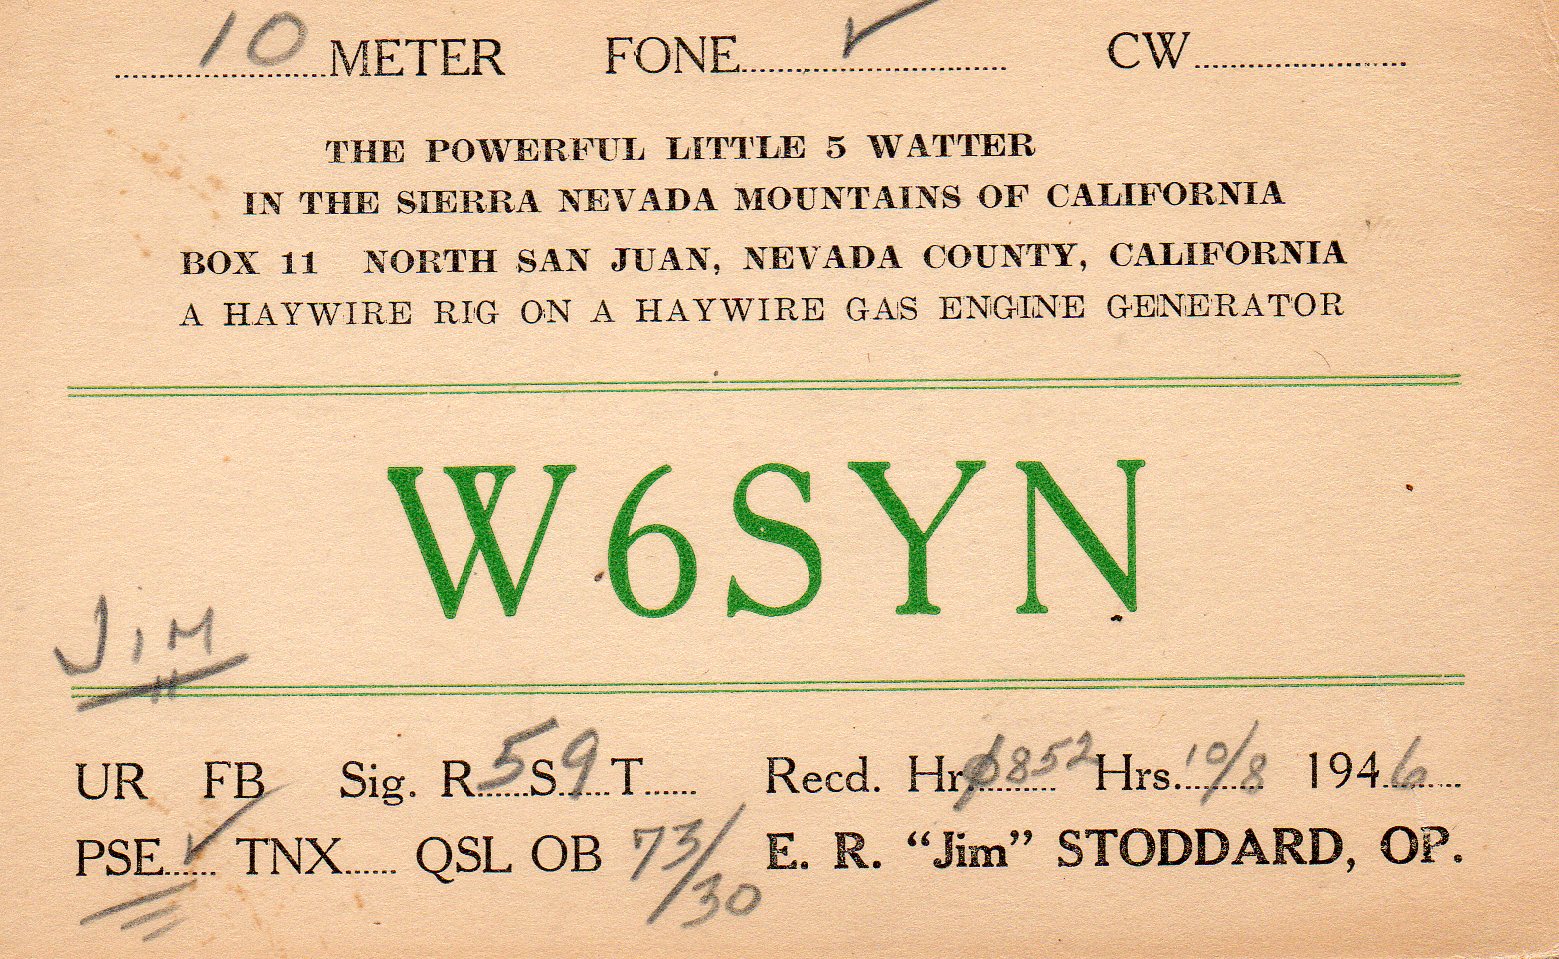 10 METER FONE ✓ CW
THE POWERFUL LITTLE 5 WATTER
IN THE SIERRA NEVADA MOUNTAINS OF CALIFORNIA
BOX 11 NORTH SAN JUAN, NEVADA COUNTY, CALIFORNIA
A HAYWIRE RIG ON A HAYWIRE GAS ENGINE GENERATOR
W6SYN
JIM
UR FB Sig. R 5 S 9 T Recd. Hr. 0852 Hrs. 10/8 1946
PSE ✓ TNX QSL OB 73/30 E. R. “Jim” STODDARD, OP.